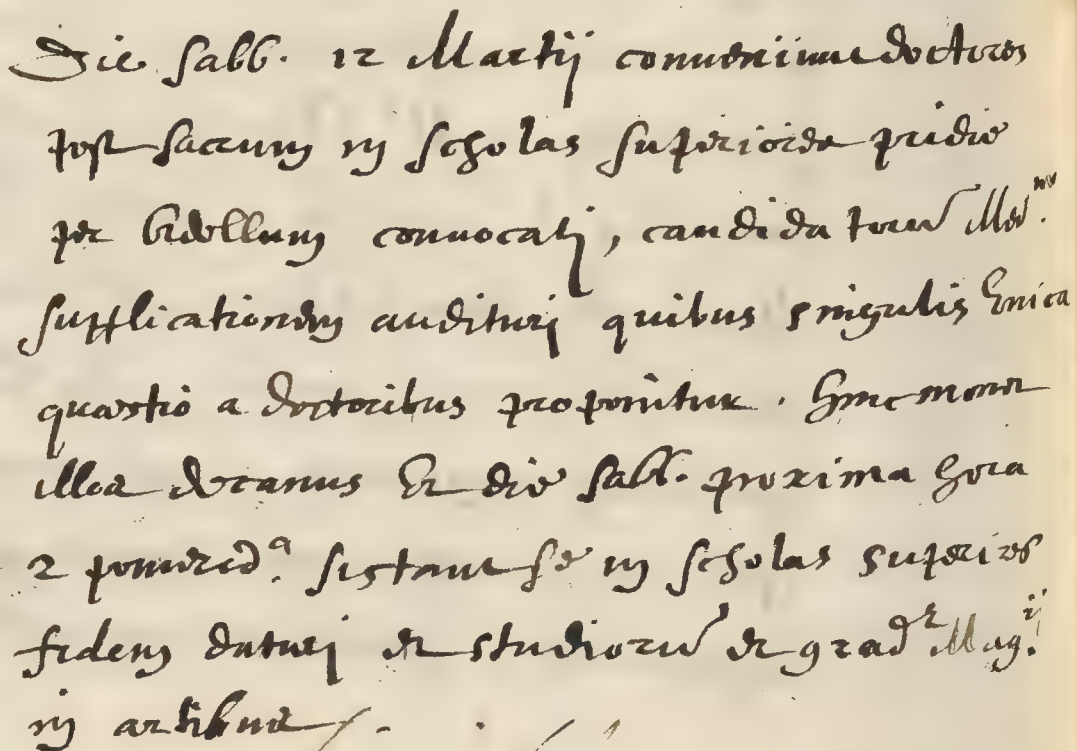 Die Sabb. 12 Martij convenimus doctores
post sacrum in scholas superiores pridie
per bidellum convocati, candidatorum Med.nae
supplicationem audituri quibus singulis vnica
quaestio a doctoribus proponitur. hinc monet
illos decanus vt die Sabb. proxima hora
2 pomerid.a sistant se in scholas superiores
fidem daturi et studiorũ et gradus Mag.ij
in artibus